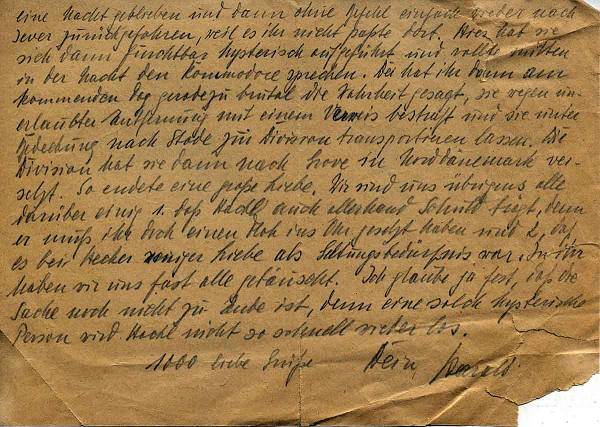 eine Nacht geblieben und dann ohne Befehl einfach wieder nach
Jever zurückgefahren, weil es ihr nicht paßte dort. Hier hat sie
sich dann furchtbar hysterisch aufgeführt und wollte mitten
in der Nacht den Kommodore sprechen. Der hat ihr dann am
kommenden Tag geradezu brutal die Wahrheit gesagt, sie wegen un-
erlaubter Entfernung mit einem Verweis bestraft und sie unter
Bedeckung nach Stade zu Division transportieren lassen. Die
Division hat sie dann nach Grove in Norddänemark ver-
setzt. So endete eine große Liebe. Wir sind uns übrigens alle
darüber einig 1. daß Hackl auch allerhand Schuld trägt, denn
er muß ihr doch einen Floh ins Ohr gesetzt haben und 2, daß
es bei weniger Liebe als Geltungsbedürfnis war. In ihr
haben wir uns fast alle getäuscht. Ich glaube ja fest, daß die
Sache noch nicht zu Ende ist, denn eine solch hysterische
Person wird Hackl nicht so schnell wieder los.
1000 liebe Grüße Dein Harald